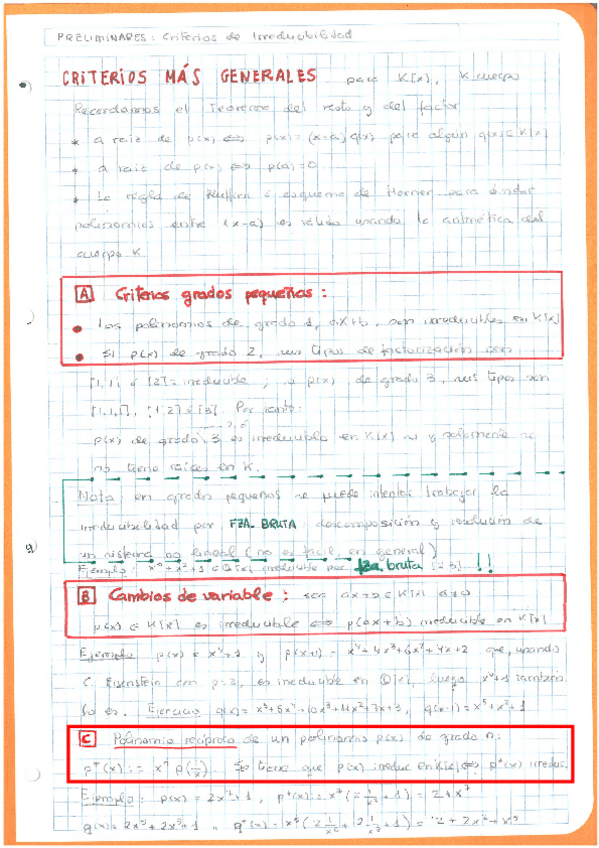 PRELIMINARES: Criterios de Irreducibilidad
CRITERIOS MÁS GENERALES para K[x], K cuerpo
Recordamos el Teorema del resto y del factor
* a raiz de p(x) ⇔ p(x) = (x-a) q(x) para algún q(x) ∈ K[x]
* a raiz de p(x) ⇔ p(a)=0
* La regla de Ruffini o esquema de Horner para dividir
polinomios entre (x-a) es válido usando la aritmética del
cuerpo K.
A Criterios grados pequeños:
• Los polinomios de grado 1, ax+b, son irreducibles en K[x]
• Si p(x) de grado 2, sus tipos de factorización son
[1,1] o [2] = irreducible ; si p(x) de grado 3, sus tipos son
[1,1,1], [1,2] o [3]. Por tanto:
p(x) de grado 3 es irreducible en K[x] si y solamente si
no tiene raíces en K.
Nota: en grados pequeños se puede intentar trabajar la
irreducibilidad por FZA. BRUTA descomposición y resolución de
un sistema no lineal (no es fácil, en general)
Ejemplo: irreducible por fza. bruta !!
B Cambios de variable: sea ax+b ∈ K[x] a≠0
p(x) ∈ K[x] es irreducible ⇔ p(ax+b) irreducible en K[x]
Ejemplo p(x) = x⁴+1 y p(x+1) = x⁴+4x³+6x²+4x+2 que, usando
C. Eisenstein con p=2, es irreducible en Q[x], luego x⁴+1 también
lo es. Ejercicio q(x) = x⁵+5x⁴+10x³+11x²+7x+3, q(x-1) = x⁵+x²+1
C Polinomio recíproco de un polinomio p(x) de grado n:
p*(x) := xⁿ p(1/x). Se tiene que p(x) irreduc. en K[x] ⇔ p*(x) irreduc.
Ejemplo: p(x) = 2x²+1, p*(x) = x²(2 1/x²+1) = 2+x²